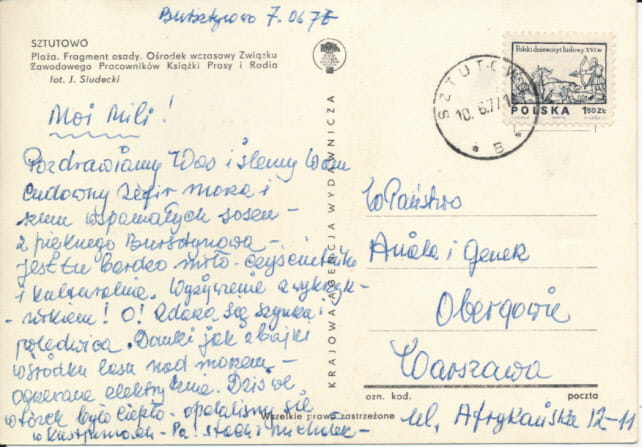 Bursztynowo 7.06.77
SZTUTOWO
Plaża. Fragment osady. Ośrodek wczasowy Związku
Zawodowego Pracowników Książki Prasy i Radia
fot. J. Siudecki
Moi Mili!
Pozdrawiamy Was i ślemy Wam
cudowny zefir morza i
szum wspaniałych sosen -
z pięknego Bursztynowa -
jest tu bardzo miło - czyściutko
i kulturalnie. Wyżywienie z wykrzyk-
nikiem! O! Zdarza się szynka i
polędwica. Domki jak z bajki
w środku lasu nad morzem -
ogrzewane elektrycznie. Dziś we
wtorek było ciepło - opalaliśmy się
w kostiumach - Pa!
KRAJOWA AGENCJA WYDAWNICZA
Polski drzeworyt ludowy XVI w
POLSKA 1.50 ZŁ
SZTUTOWO
10. 6. 77. 1
* B *
W Państwo
Aniela i Genek
Obergowie
Warszawa
ozn. kod. poczta
ul. Afrykańska 12-11
Wszelkie prawa zastrzeżone